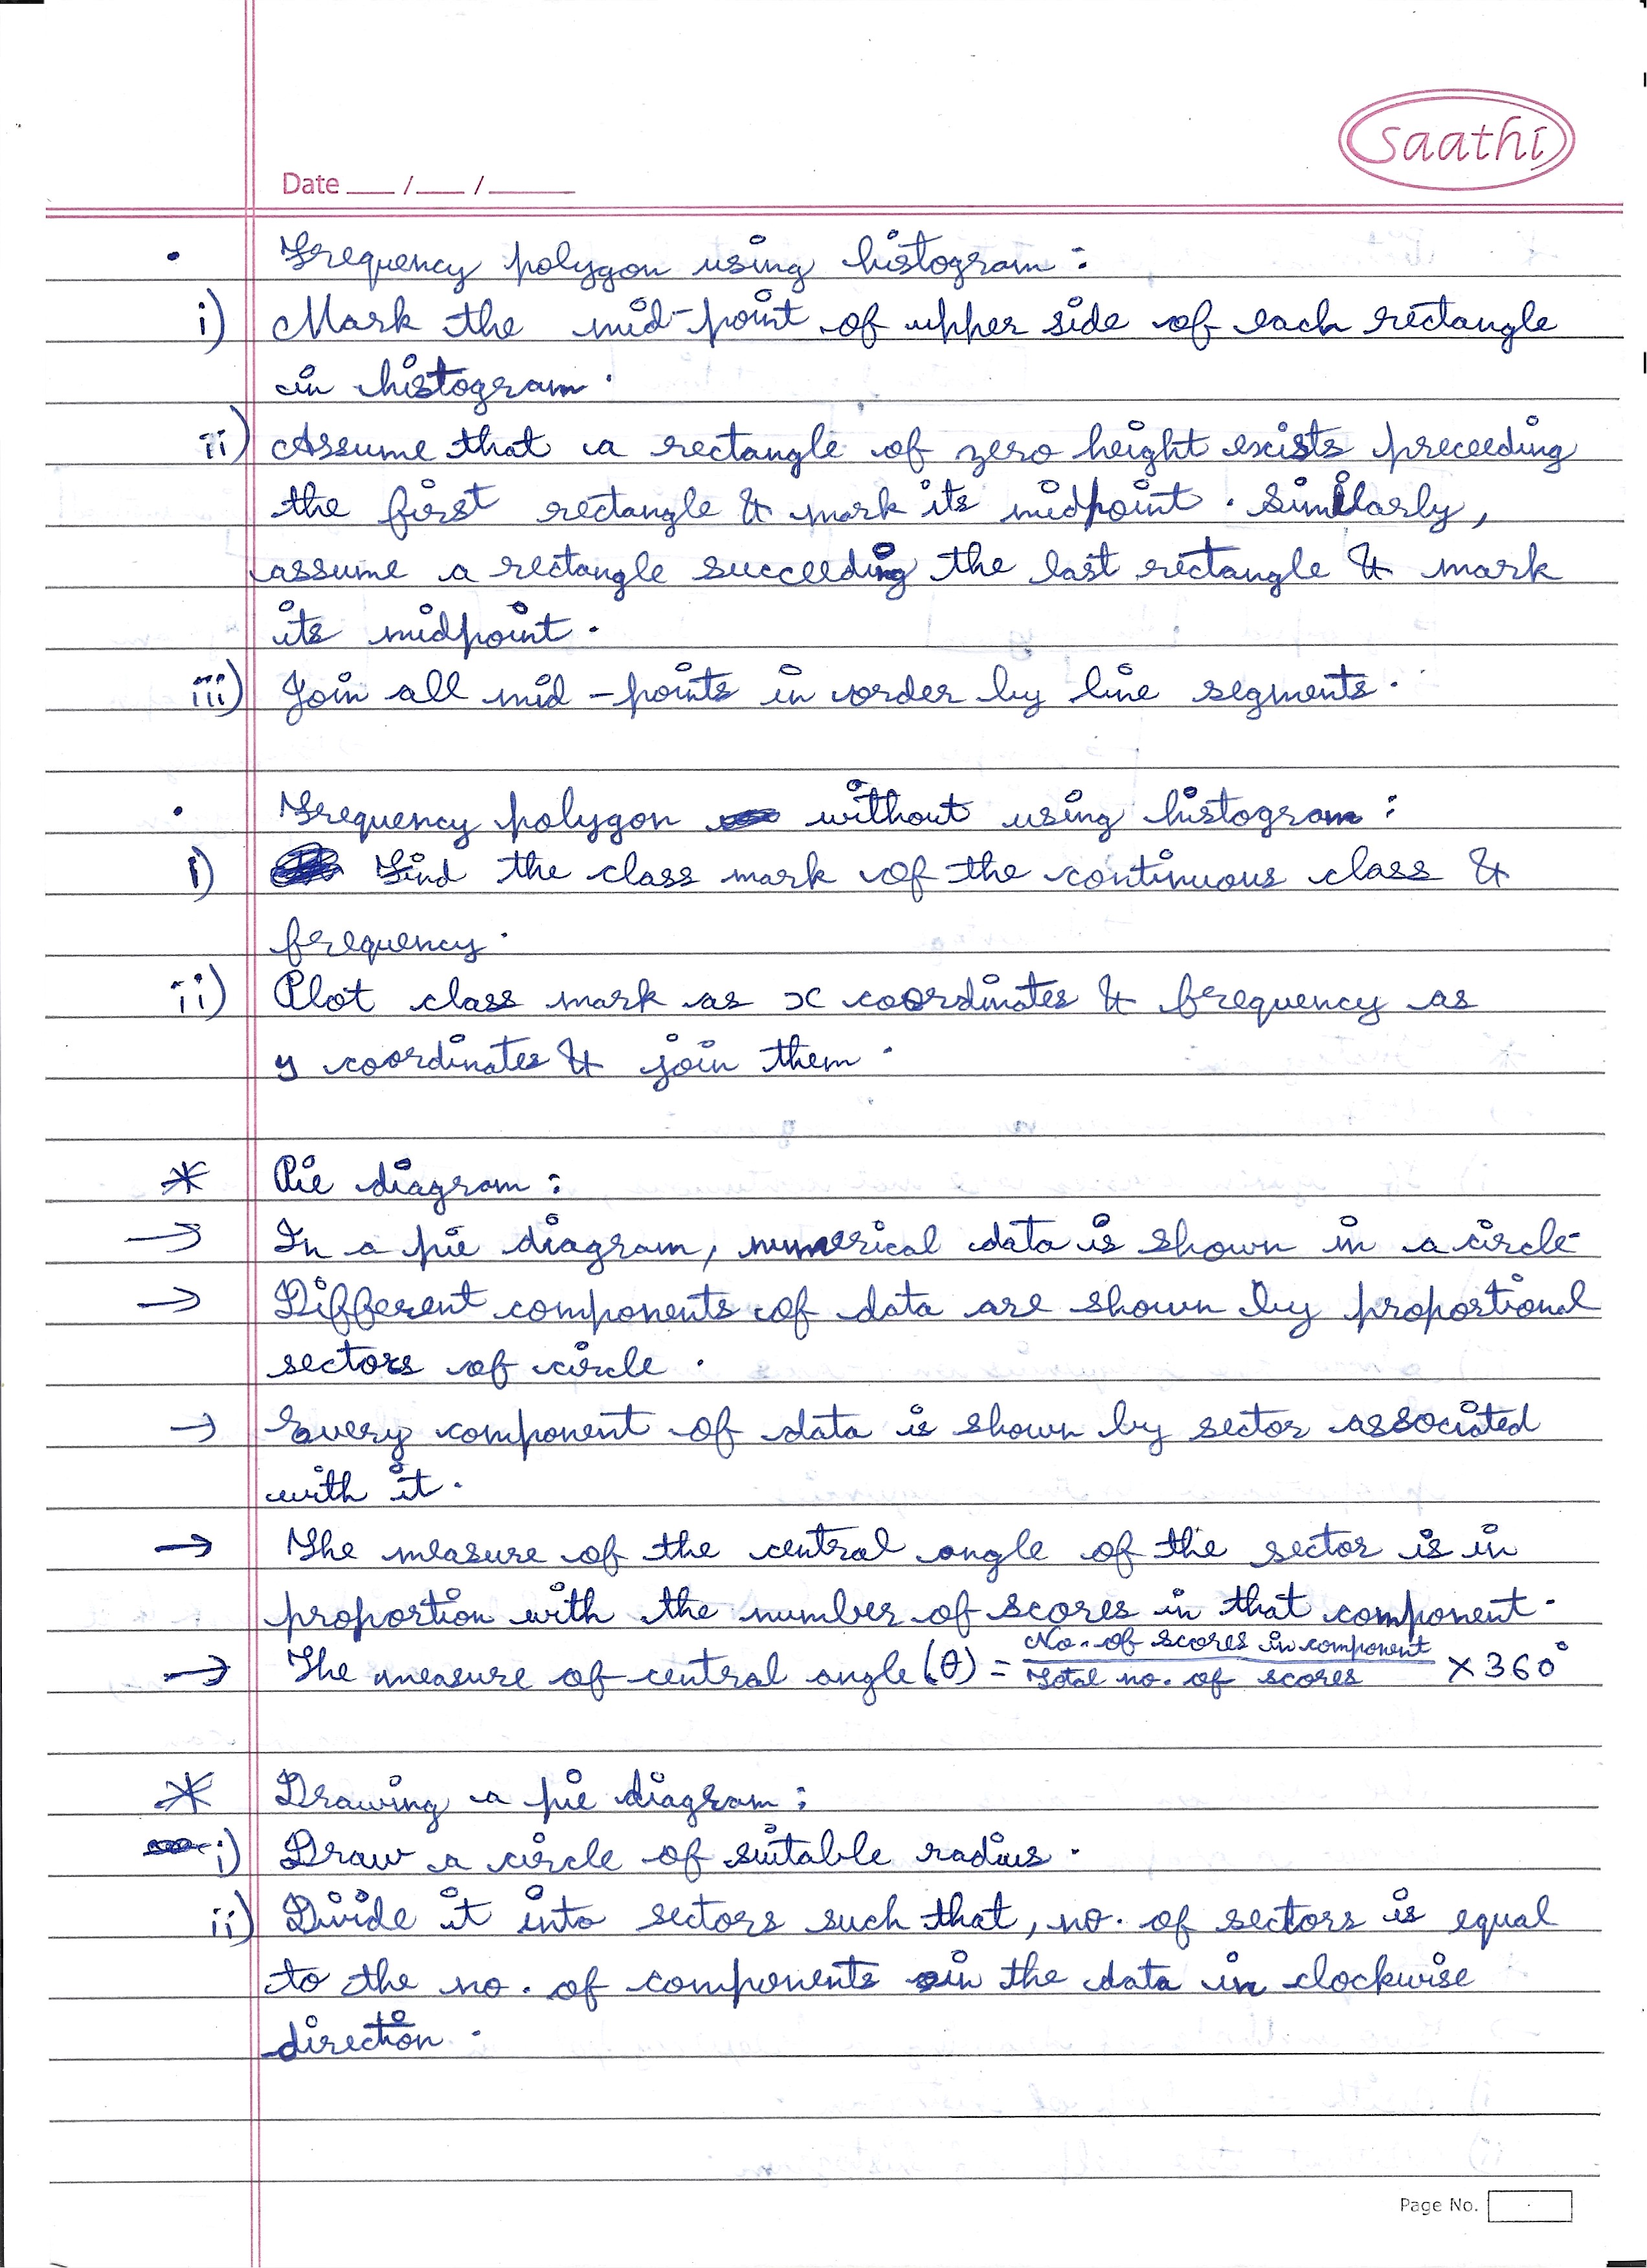 saathi
Date ___ / ___ / ______
• Frequency polygon using histogram :
i) Mark the mid-point of upper side of each rectangle
in histogram.
ii) Assume that a rectangle of zero height exists preceeding
the first rectangle & mark its midpoint. Similarly,
assume a rectangle succeeding the last rectangle & mark
its midpoint.
iii) Join all mid-points in order by line segments.
• Frequency polygon without using histogram :
i) Find the class mark of the continuous class &
frequency.
ii) Plot class mark as x coordinates & frequency as
y coordinates & join them.
* Pie diagram :
→ In a pie diagram, numerical data is shown in a circle
→ Different components of data are shown by proportional
sectors of circle.
→ Every component of data is shown by sector associated
with it.
→ The measure of the central angle of the sector is in
proportion with the number of scores in that component.
→ The measure of central angle (θ) = No. of scores in component / Total no. of scores × 360°
* Drawing a pie diagram :
i) Draw a circle of suitable radius.
ii) Divide it into sectors such that, no. of sectors is equal
to the no. of components in the data in clockwise
direction.
Page No.